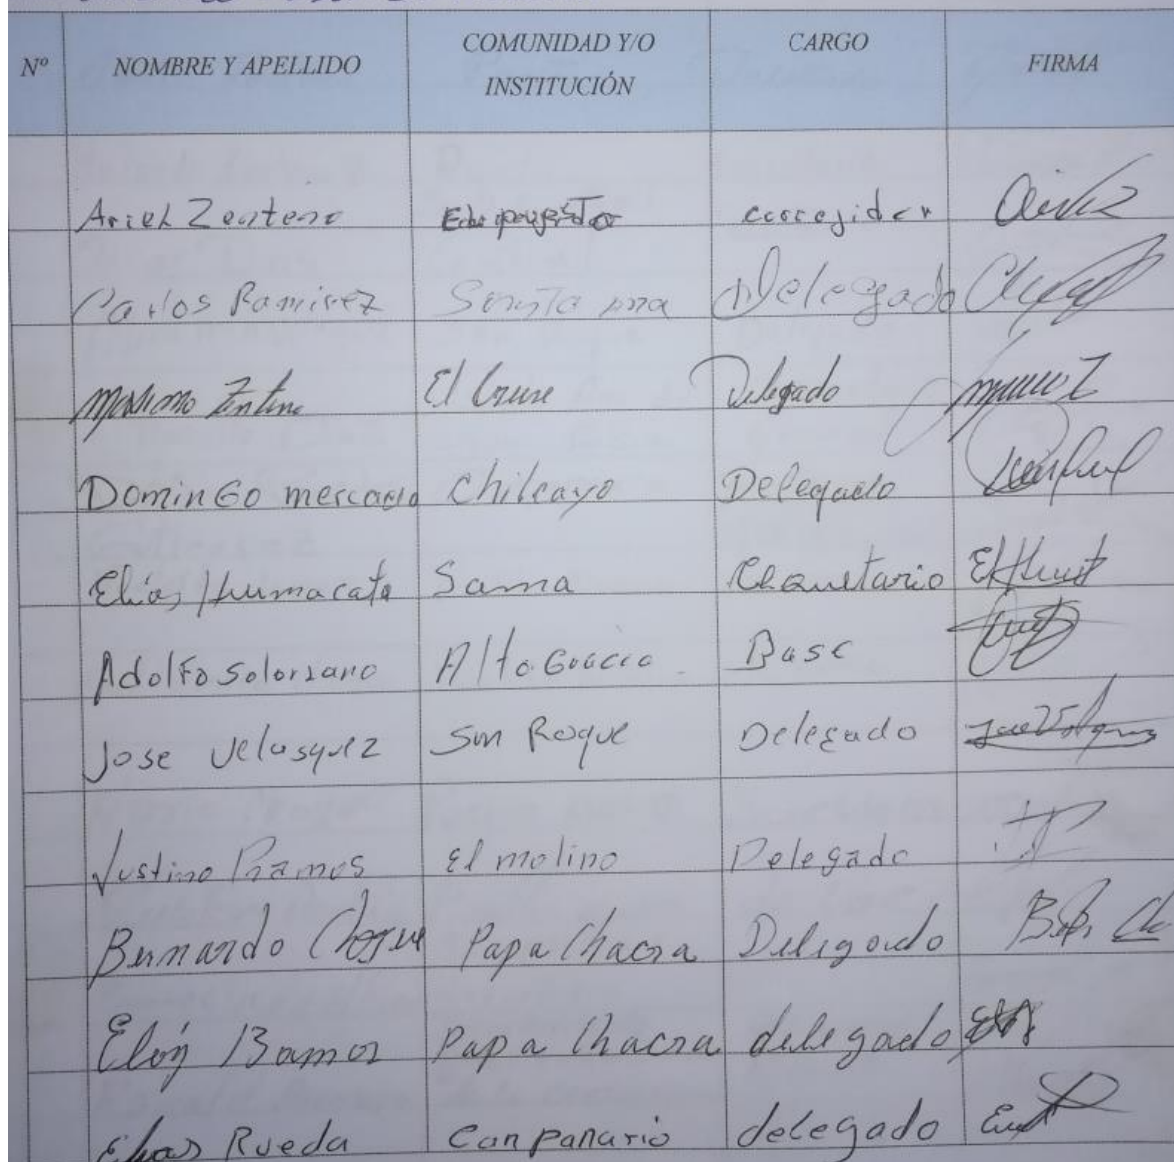 Nº NOMBRE Y APELLIDO COMUNIDAD Y/O INSTITUCIÓN CARGO FIRMA
Ariel Zenteno corregidor
Carlos Ramirez Santa Ana Delegado
Mariano Zenteno El Cruce Delegado
DominGo mercado Chilcayo Delegado
Elías Humacata Sama
Adolfo Solorzano Alto Base
Jose Velasquez San Roque Delegado
Justino Ramos El molino Delegado
Bernardo Choque Papa Chacra Delegado
Eloy Papa Chacra delegado
Elias Rueda Canpanario delegado